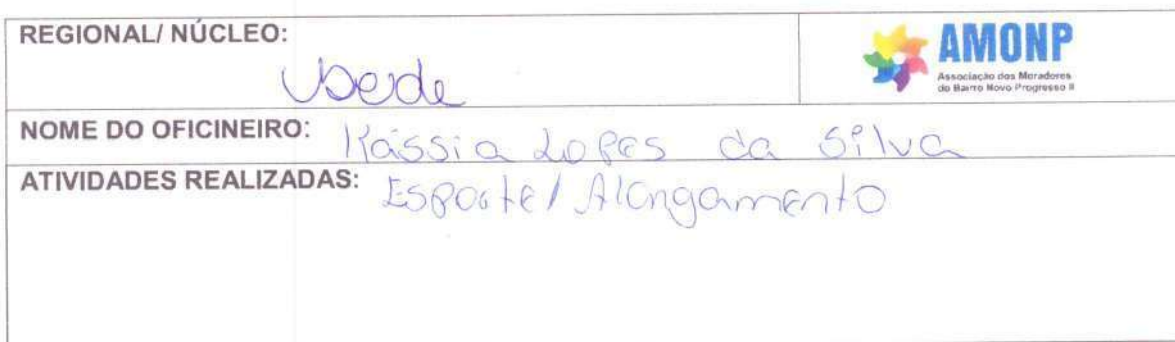 REGIONAL/ NÚCLEO:
AMONP
Associação dos Moradores
do Bairro Novo Progresso II
NOME DO OFICINEIRO: Kássia Lopes da Silva
ATIVIDADES REALIZADAS: Esporte/ Alongamento